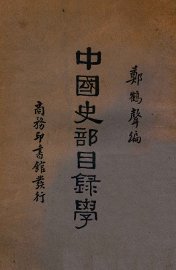 鄭鶴聲編
中國史部目録學
商務印書館發行